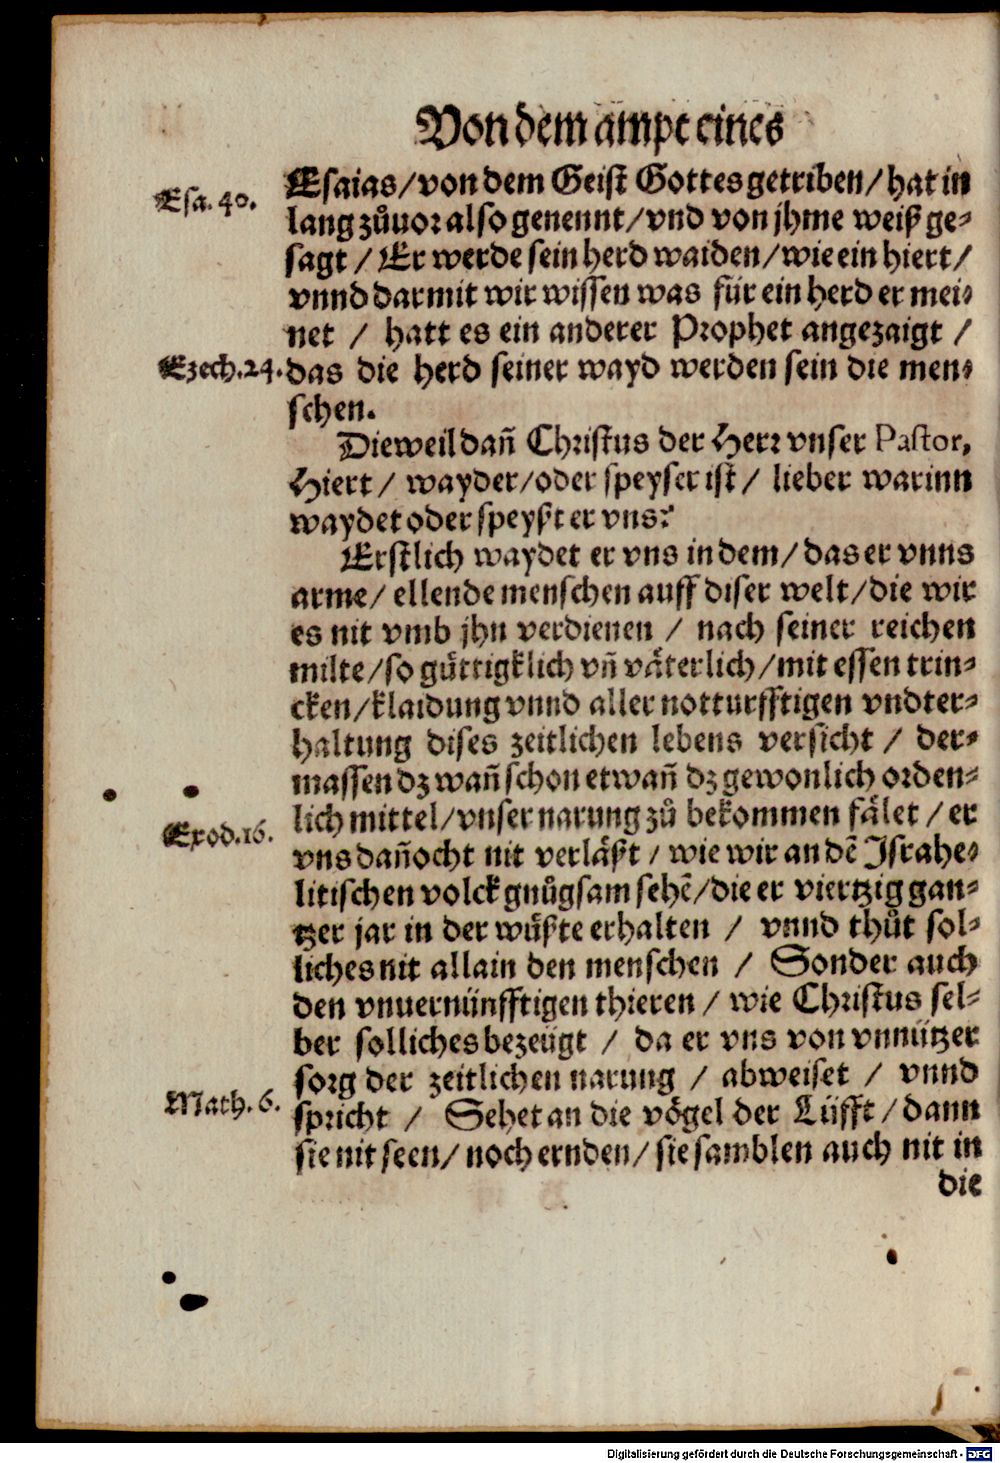 Von dem ampt eines
Esa. 40.
Esaias / von dem Geist Gottes getriben / hat in
lang zůuor also genennt / vnd von jhme weiß ge-
sagt / Er werde sein herd waiden / wie ein hiert /
vnnd darmit wir wissen was für ein herd er mei-
net / hatt es ein anderer Prophet angezaigt /
Ezech. 24.
das die herd seiner wayd werden sein die men-
schen.
Dieweil dañ Christus der Herr vnser Pastor,
Hiert / wayder / oder speyser ist / lieber warinn
waydet oder speyßt er vns?
Erstlich waydet er vns in dem / das er vnns
arme / ellende menschen auff diser welt / die wir
es nit vmb jhn verdienen / nach seiner reichen
milte / so gůttigklich vñ våterlich / mit essen trin-
cken / klaidung vnnd aller notturfftigen vndter-
haltung dises zeitlichen lebens versicht / der-
massen dz wañ schon etwañ dz gewonlich orden-
lich mittel / vnser narung zů bekommen fålet / er
Exod. 16.
vns dañocht nit verlåßt / wie wir an dẽ Israhe-
litischen volck gnůgsam sehẽ / die er viertzig gan-
tzer jar in der wůßte erhalten / vnnd thůt sol-
liches nit allain den menschen / Sonder auch
den vnuernünfftigen thieren / wie Christus sel-
ber solliches bezeügt / da er vns von vnnützer
sorg der zeitlichen narung / abweiset / vnnd
Math. 6.
spricht / Sehet an die vögel der Lüfft / dann
sie nit seen / noch ernden / sie samblen auch nit in
die
Digitalisierung gefördert durch die Deutsche Forschungsgemeinschaft - DFG